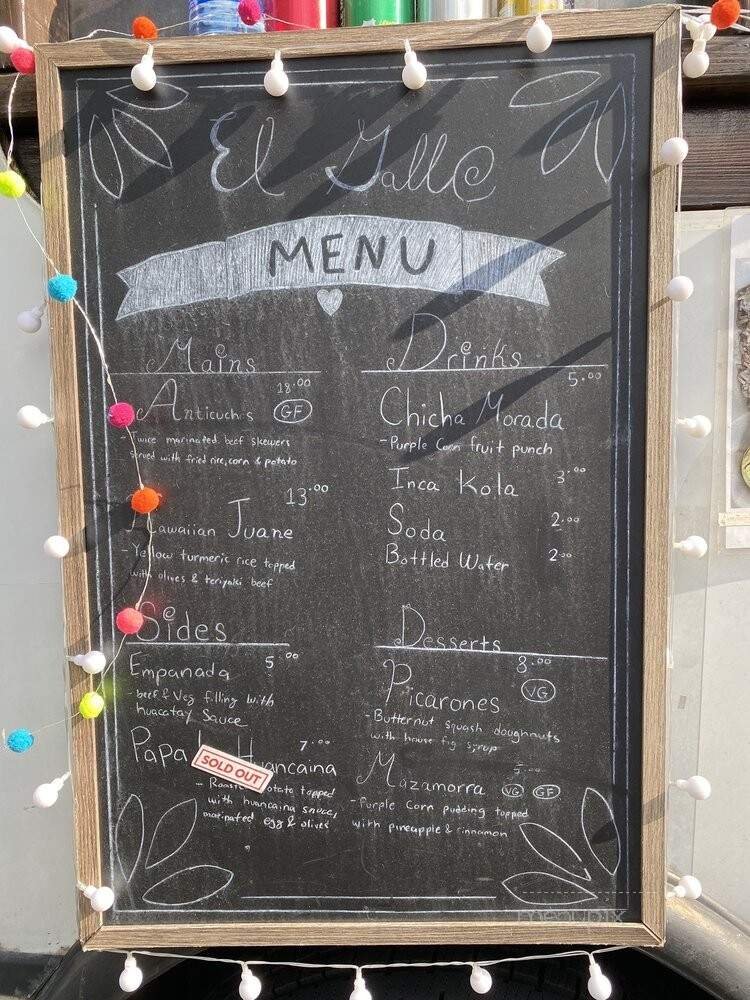 El Gallo
MENU
Mains
18.00
Anticuchos GF
- Twice marinated beef skewers
served with fried rice, corn & potato
13.00
Hawaiian Juane
- Yellow turmeric rice topped
with olives & teriyaki beef
Sides
Empanada 5.00
- beef & Veg filling with
huacatay Sauce
Papa Huancaina 7.00
SOLD OUT
- Roasted potato topped
with huancaina sauce,
marinated egg & olives
Drinks
5.00
Chicha Morada
- Purple Corn fruit punch
Inca Kola 3.00
Soda 2.00
Bottled Water 2.00
Desserts
8.00
Picarones VG
- Butternut squash doughnuts
with house fig syrup
Mazamorra VG GF
- Purple Corn pudding topped
with pineapple & cinnamon
menupix